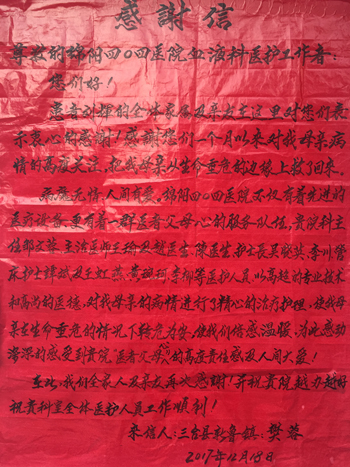 感謝信
尊敬的绵阳四〇四医院血液科医护工作者:
您们好!
患者刘辉的全体家属及亲友在这里对您们表
示衷心的感谢!感谢您们一个月以来对我母亲病
情的高度关注,把我母亲从生命垂危的边缘上救了回来。
病魔无情,人间有爱,绵阳四〇四医院不仅有着先进的
医疗设备,更有着一群医者父母心的服务队伍,贵院科主
任邹文蓉,主治医师王瑜及赵医生,陈医生,护士长吴晓英,管
床护士
李柳等医护人员,以高超的专业技术
和高尚的医德,对我母亲的病情进行了精心的治疗护理,使我母
亲在生命垂危的情况下转危为安,使我们倍感温暖,为此感动
深深的感受到贵院"医者父母心"的高度责任感及人间大爱!
在此,我们全家人及亲友再次感谢!并祝贵院越办越好
祝贵科室全体医护人员工作顺利!
来信人:三台县新鲁镇:樊蓉
2017年12月18日